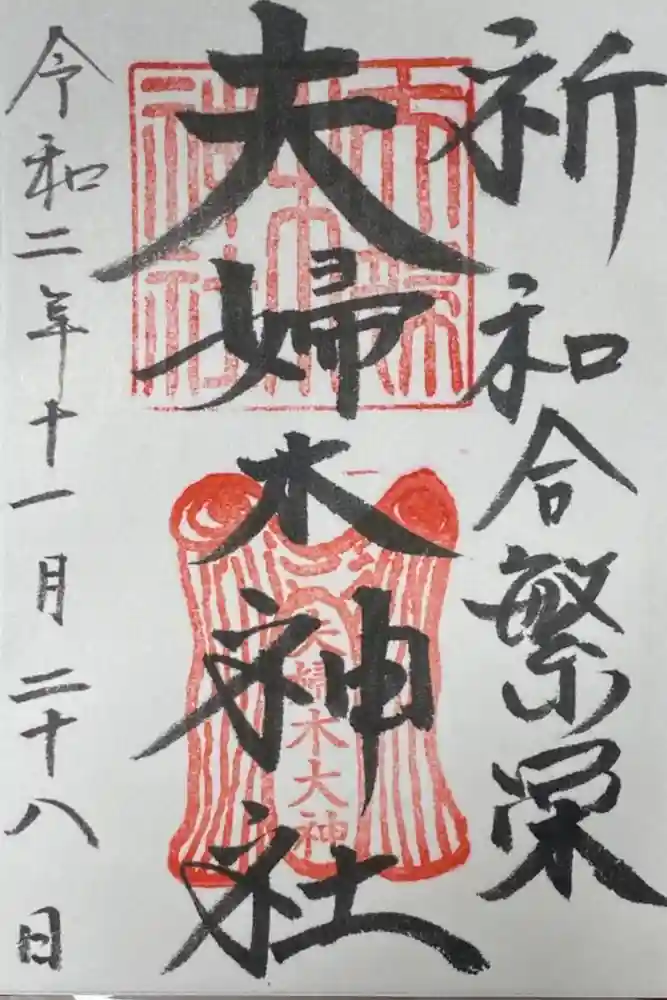 祈和合繁栄
夫婦木神社
夫婦木神社
夫婦木大神
令和二年十一月二十八日